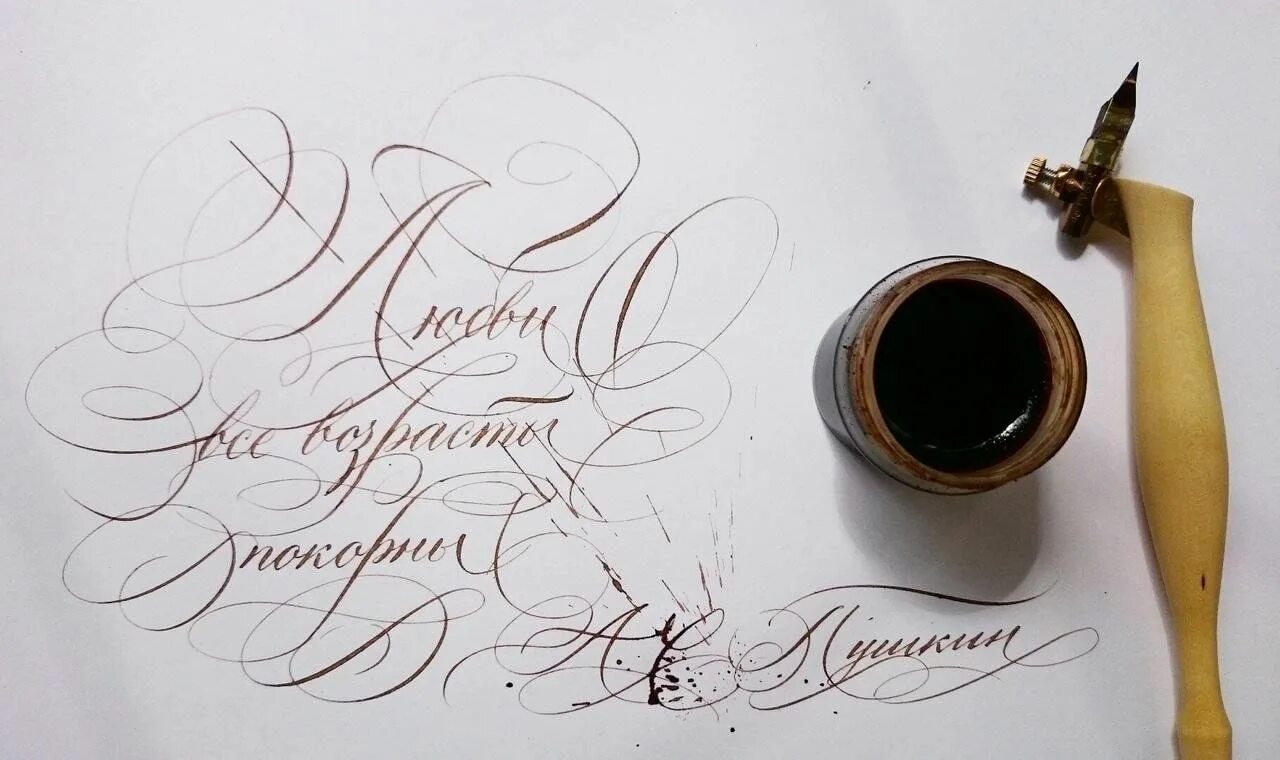 Любви
все возрасты
покорны
А С Пушкин